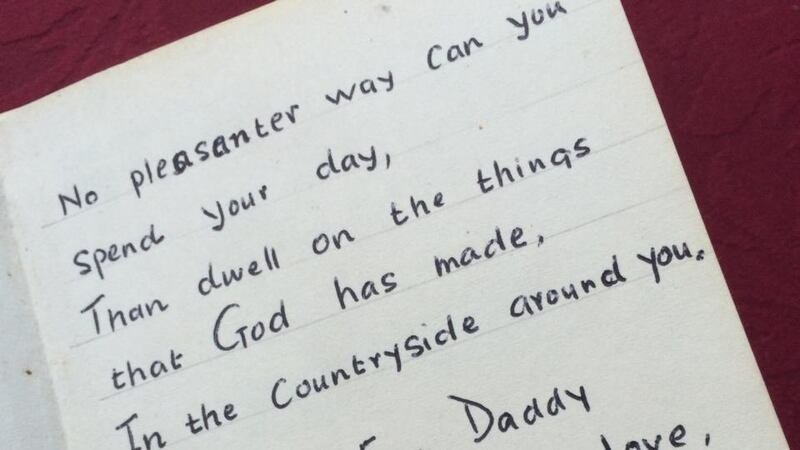 No pleasanter way can you
spend your day,
Than dwell on the things
that God has made,
In the Countryside around you.
Daddy
love,